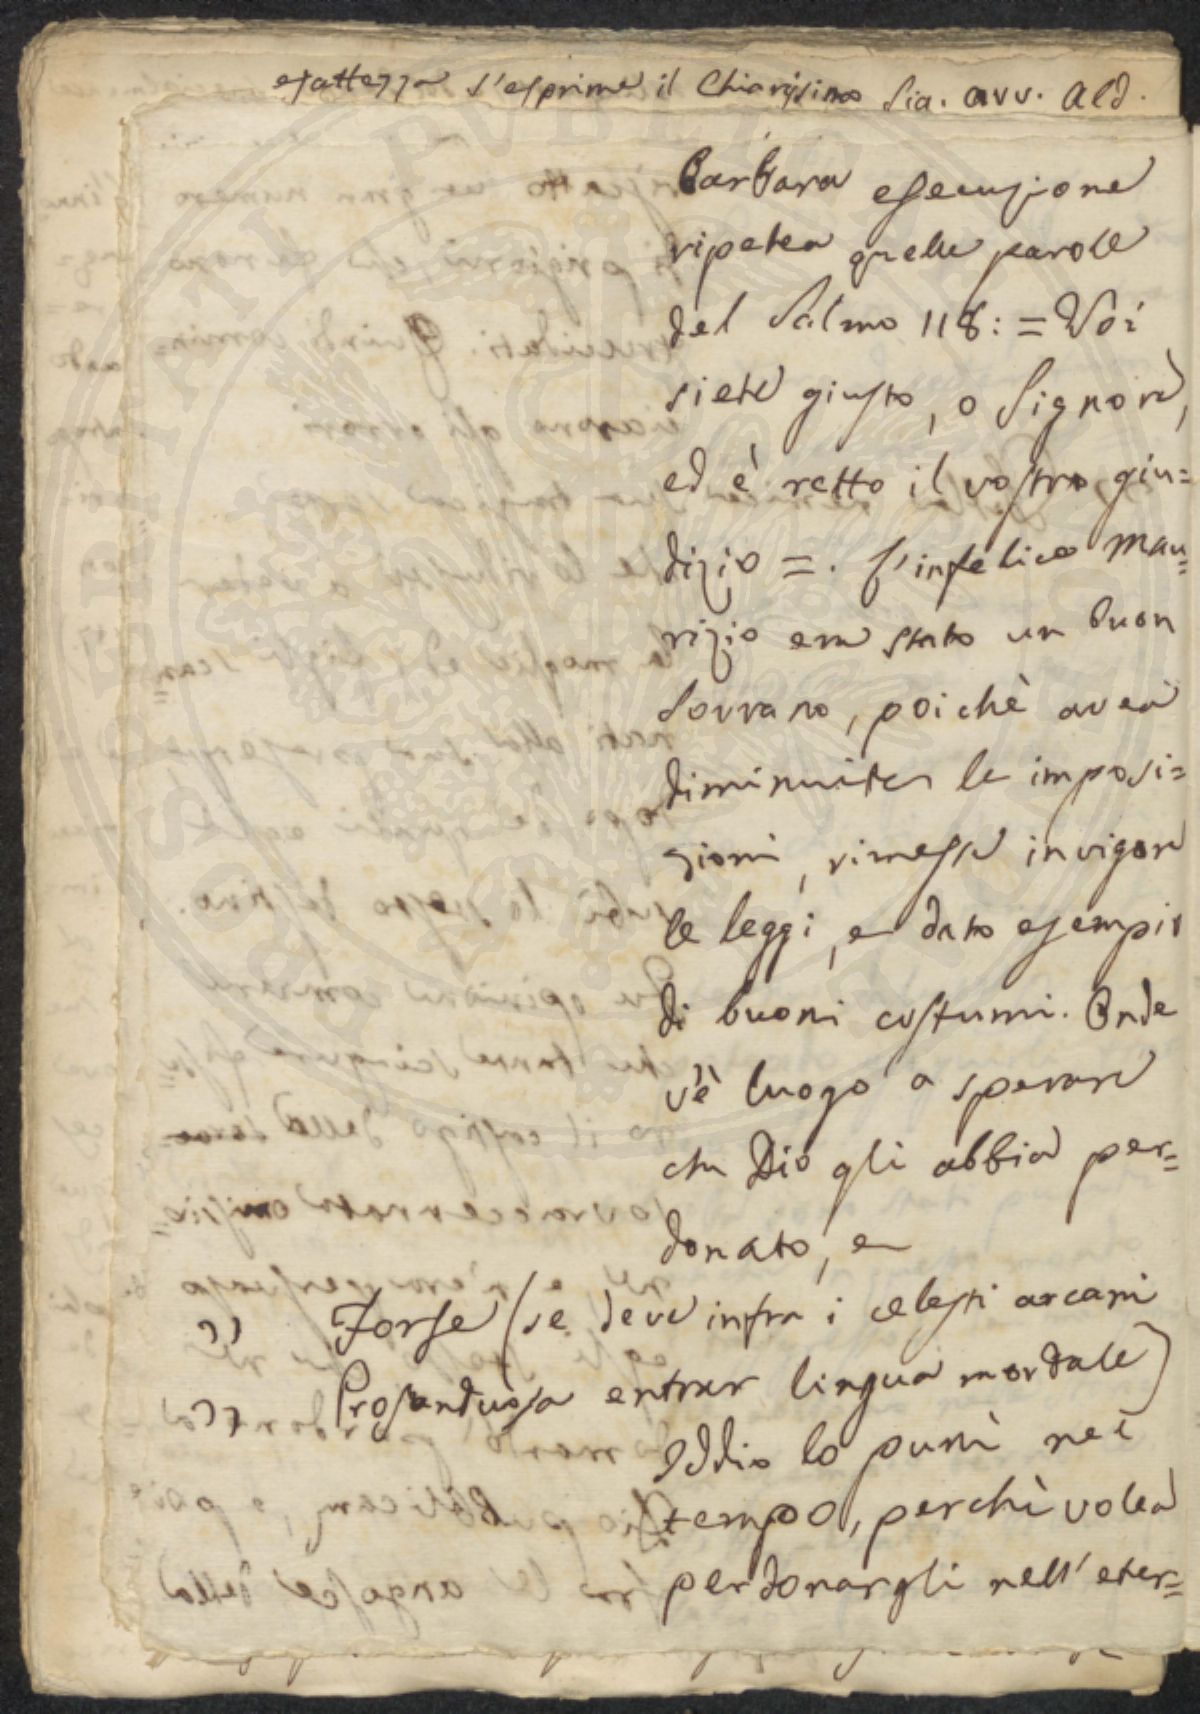 esattezza s'esprime il Chiarissimo Sig. avv. Ald.
Barbara esecuzione
ripetea quelle parole
del Salmo 118: = Voi
siete giusto, o Signore,
ed è retto il vostro giu=
dizio =. L'infelice Mau=
rizio era stato un buon
Sovrano, poichè avea
diminuite le imposi=
zioni, rimesse in vigore
le leggi, e dato esempio
di buoni costumi. Onde
v'è luogo a sperare
che Dio gli abbia per=
donato, e
" Forse (se deve infra i celesti arcani
" Prosuntuosa entrar lingua mortale)
Iddio lo punì nel
tempo, perchè volea
perdonargli nell'eter=